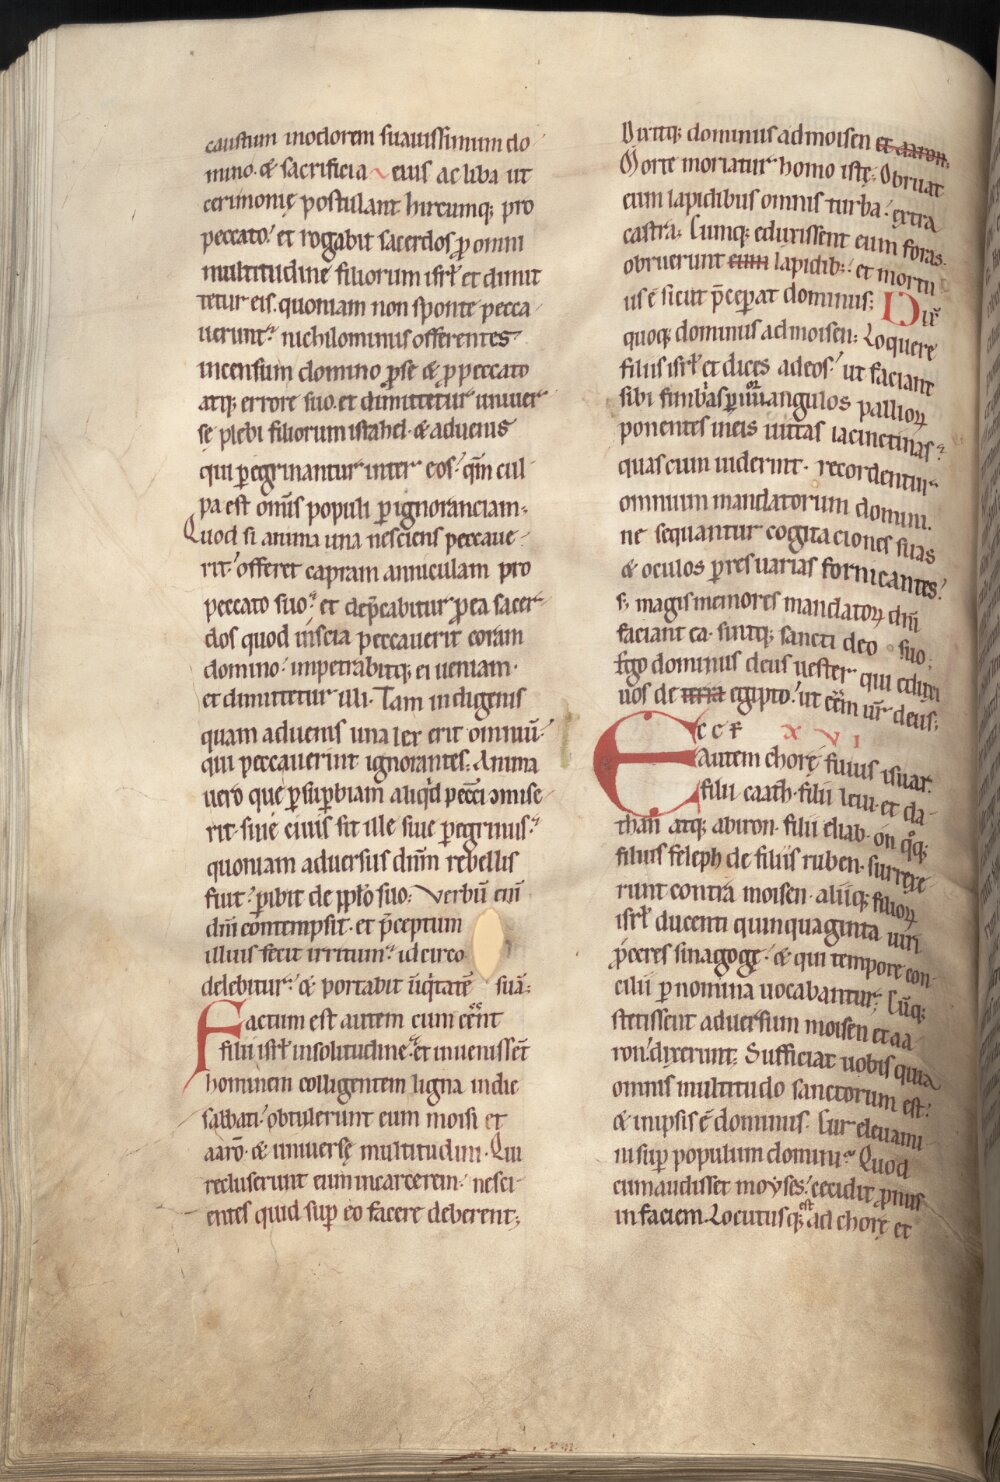 caustum inodorem suauissimum do
mino. & sacrificia eius ac liba ut
cerimonię postulant hircumq; pro
peccato. et rogabit sacerdos ꝓ omni
multitudine filiorum isrl̄ et dimit
tetur eis. quoniam non sponte pecca
uerunt. nichilominus offerentes
incensum domino ꝓse & ꝓ peccato
atq; errore suo. et dimittetur uniuer
sę plebi filiorum israhel. & aduenis
qui ꝑegrinantur inter eos. qm̄ cul
pa est om̄is populi ꝑ ignoranciam.
Quod si anima una nesciens peccaue
rit. offeret capram anniculam pro
peccato suo. et dep̄cabitur ꝓ ea sacer
dos quod inscia peccauerit coram
domino. impetrabitq; ei ueniam.
et dimittetur illi. Tam indigenis
quam aduenis una lex erit omniū.
qui peccauerint ignorantes. Anima
uero que ꝑ suꝑbiam aliqd peccī amise
rit. siue ciuis sit ille siue ꝑegrinus.
quoniam aduersus dn̄m rebellis
fuit. ꝑibit de ppl̄o suo. Verbū eni
dn̄i contempsit. et p̄ceptum
illius fecit irritum. idcirco
delebitur. & portabit iniq̇tatē suā.
Factum est autem cum eēnt
filii isrl̄ insolitudine. et inuenissēt
hominem colligentem ligna indie
sabbati. obtulerunt eum moisi et
aarō. & uniuersę multitudini. Qui
recluserunt eum incarcerem. nesci
entes quid suꝑ eo facere deberent;
Dixitq; dominus admoisen et aaron.
Morte moriatur homo iste. Obruat
eum lapidibus omnis turba. extra
castra. Cumq; eduxissent eum foras.
obruerunt eum lapidib;. et mortu
us ē sicut p̄ceperat dominus; Dix̄
quoq; dominus admoisen. Loquere
filiis isrl̄ et dices adeos. ut faciant
sibi fimbrias ꝑ iiiiᵒʳ angulos pallioꝝ
ponentes ineis uittas iacinctinas.
quas cum uiderint. recordentur
omnium mandatorum domini.
ne sequantur cogitaciones suas
& oculos ꝑ res uarias fornicantes.
s; magis memores mandatoꝝ dn̄i
faciant ea. sintq; sancti deo suo.
Ego dominus deus uester qui eduxi
uos de terra egipto. ut eēm ur̄ deus;
Ecce xvi
autem chorę filius isuar.
filii caath. filii leui. et da
than atq; abiron. filii eliab. on q̊q;
filius feleph de filiis ruben. surrexe
runt contra moisen. aliiq; filioꝝ
isrl̄ ducenti quinquaginta uiri
ꝓceres sinagogę. & qui tempore con
cilii ꝑ nomina uocabantur; Cūq;
stetissent aduersum moisen et aa
ron. dixerunt; Sufficiat uobis quia
omnis multitudo sanctorum est.
& inipsis ē dominus. Cur eleuami
ni suꝑ populum domini. Quod
cum audisset moyses. cecidit ꝓnus
in faciem. Locutusq; est ad chorę et